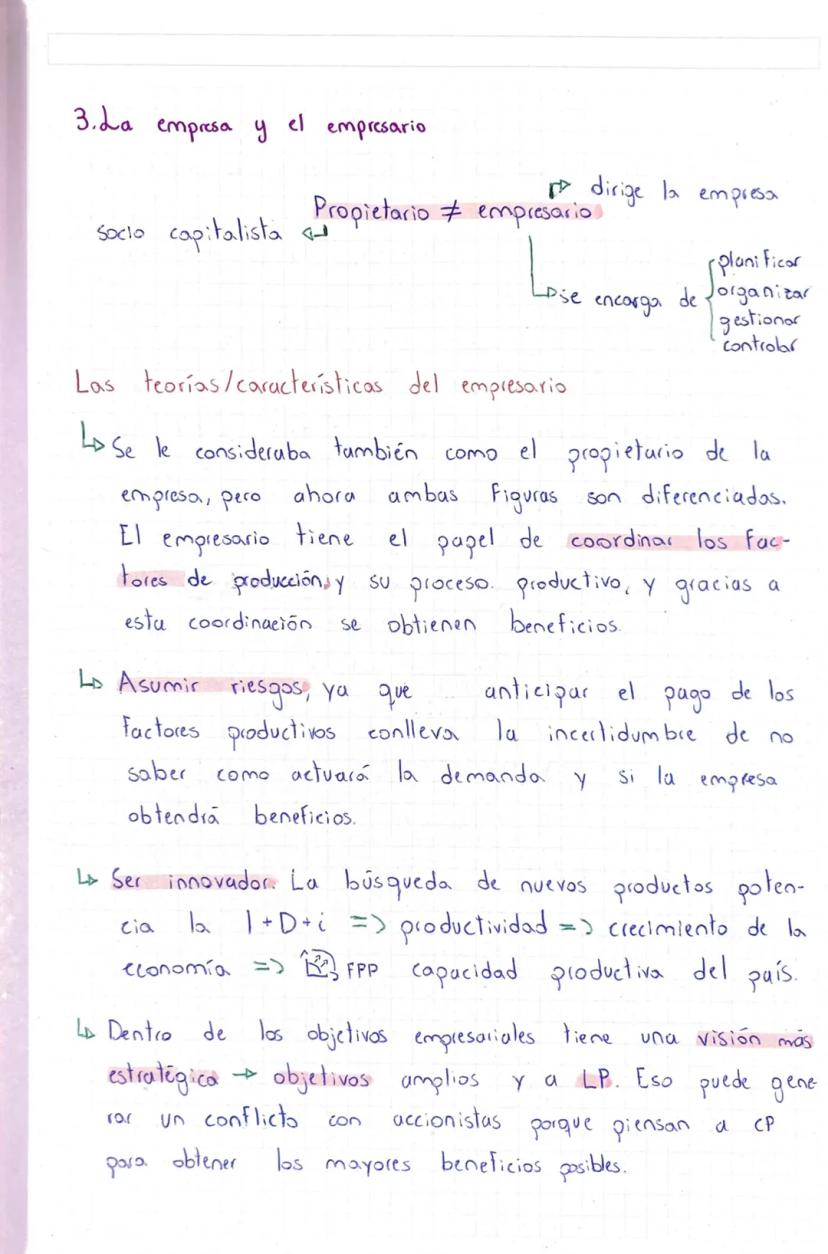 3. La empresa y el empresario
dirige la empresa
Propietario ≠ empresario
socio capitalista
se encarga de
planificar
organizar
gestionar
controlar
Las teorías/características del empresario
Se le consideraba también como el propietario de la
empresa, pero ahora ambas figuras son diferenciadas.
El empresario tiene el papel de coordinar los fac-
tores de producción, y su proceso productivo, y gracias a
esta coordinación se obtienen beneficios.
Asumir riesgos, ya que anticipar el pago de los
factores productivos conlleva la incertidumbre de no
saber como actuará la demanda y si la empresa
obtendrá beneficios.
Ser innovador. La búsqueda de nuevos productos poten-
cia la I+D+i => productividad => crecimiento de la
economía => FPP capacidad productiva del país.
Dentro de los objetivos empresariales tiene una visión más
estratégica → objetivos amplios y a LP. Eso puede gene
rar un conflicto con accionistas porque piensan a CP
para obtener los mayores beneficios posibles.